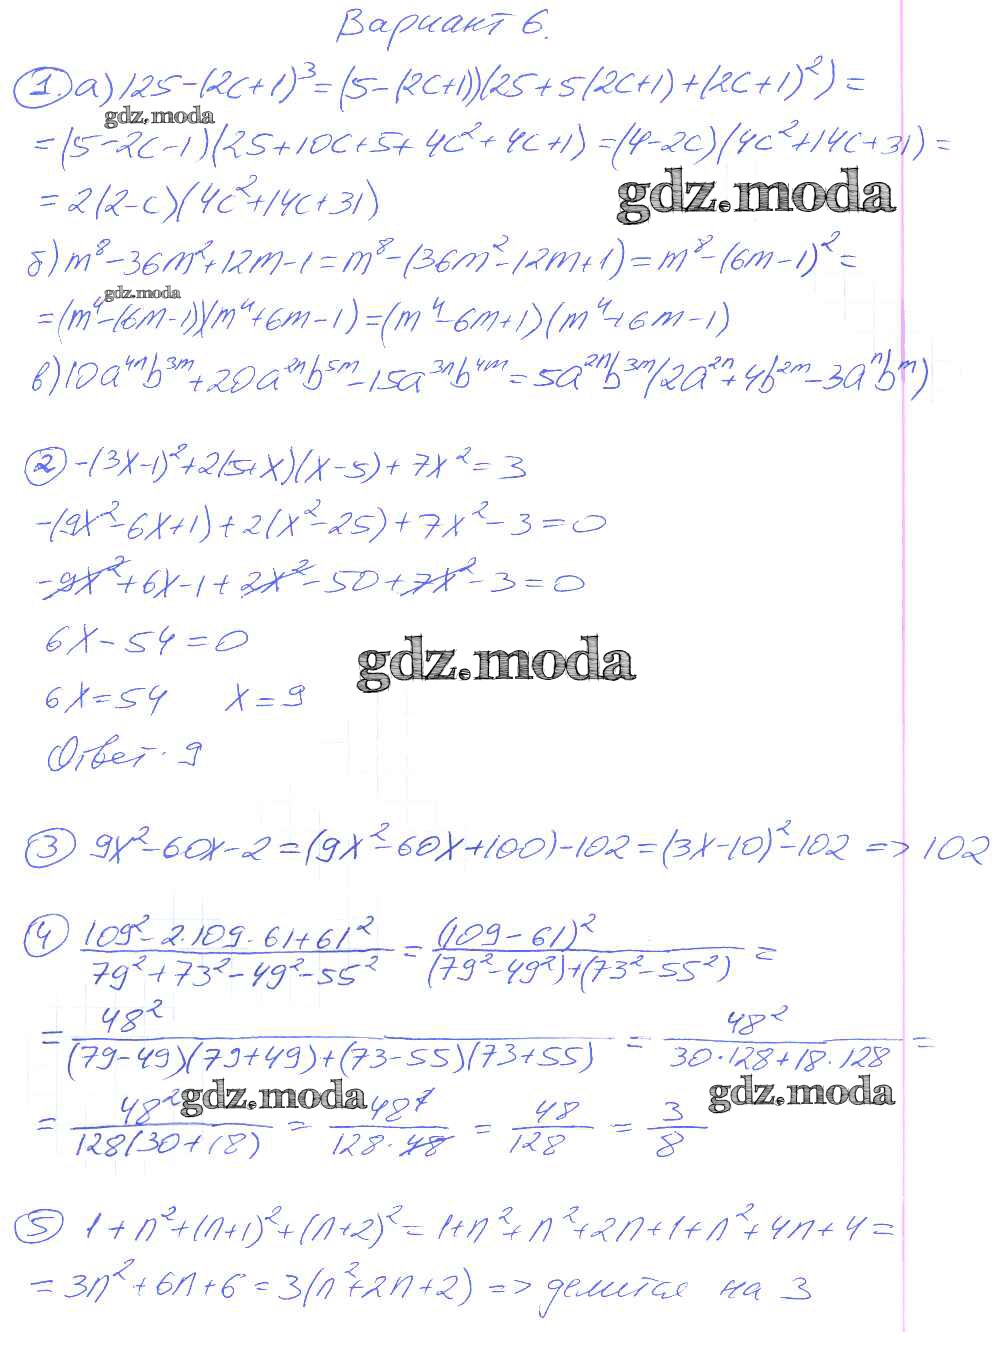 Вариант 6.
1. а) 125-(2c+1)³=(5-(2c+1))(25+5(2c+1)+(2c+1)²)=
gdz.moda
=(5-2c-1)(25+10c+5+4c²+4c+1)=(4-2c)(4c²+14c+31)=
=2(2-c)(4c²+14c+31)
gdz.moda
б) m⁸-36m²+12m-1=m⁸-(36m²-12m+1)=m⁸-(6m-1)²=
gdz.moda
=(m⁴-(6m-1))(m⁴+6m-1)=(m⁴-6m+1)(m⁴+6m-1)
в) 10a⁴ⁿb³ᵐ+20a²ⁿb⁵ᵐ-15a³ⁿb⁴ᵐ=5a²ⁿb³ᵐ(2a²ⁿ+4b²ᵐ-3aⁿbᵐ)
2 -(3x-1)²+2(5+x)(x-5)+7x²=3
-(9x²-6x+1)+2(x²-25)+7x²-3=0
-9x²+6x-1+2x²-50+7x²-3=0
6x-54=0
gdz.moda
6x=54 x=9
Ответ. 9
3 9x²-60x-2=(9x²-60x+100)-102=(3x-10)²-102 => 102
4 (109²-2·109·61+61²)/(79²+73²-49²-55²) = (109-61)²/((79²-49²)+(73²-55²)) =
= 48²/((79-49)(79+49)+(73-55)(73+55)) = 48²/(30·128+18·128) =
gdz.moda gdz.moda
= 48²/(128(30+18)) = 48²/(128·48) = 48/128 = 3/8
5 1+n²+(n+1)²+(n+2)²=1+n²+n²+2n+1+n²+4n+4=
=3n²+6n+6=3(n²+2n+2) => делится на 3